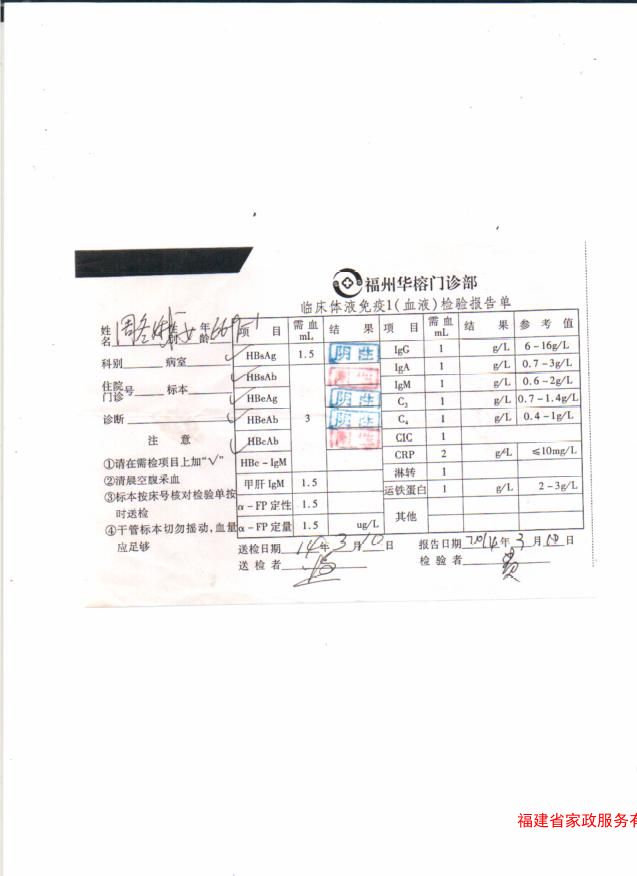 福州华榕门诊部
临床体液免疫1(血液)检验报告单
姓名 性别 女 年龄
科别 病室
住院 门诊 号 标本
诊断
注 意
①请在需检项目上加“√”
②清晨空腹采血
③标本按床号核对检验单按时送检
④干管标本切勿摇动,血量应足够
项 目 需血 mL 结 果 项 目 需血 mL 结 果 参 考 值
√ HBsAg 1.5 阴性 IgG 1 g/L 6-16g/L
√ HBsAb 3 IgA 1 g/L 0.7-3g/L
IgM 1 g/L 0.6-2g/L
√ HBeAg 阴性 C3 1 g/L 0.7-1.4g/L
√ HBeAb 阴性 C4 1 g/L 0.4-1g/L
√ HBcAb CIC 1
HBc-IgM CRP 2 g/L ≤10mg/L
甲肝 IgM 1.5 淋转 1
α-FP 定性 1.5 运铁蛋白 1 g/L 2-3g/L
α-FP 定量 1.5 ug/L 其他
送检日期 14 年 3 月 10 日 报告日期 2014 年 3 月 10 日
送 检 者 检 验 者
福建省家政服务有